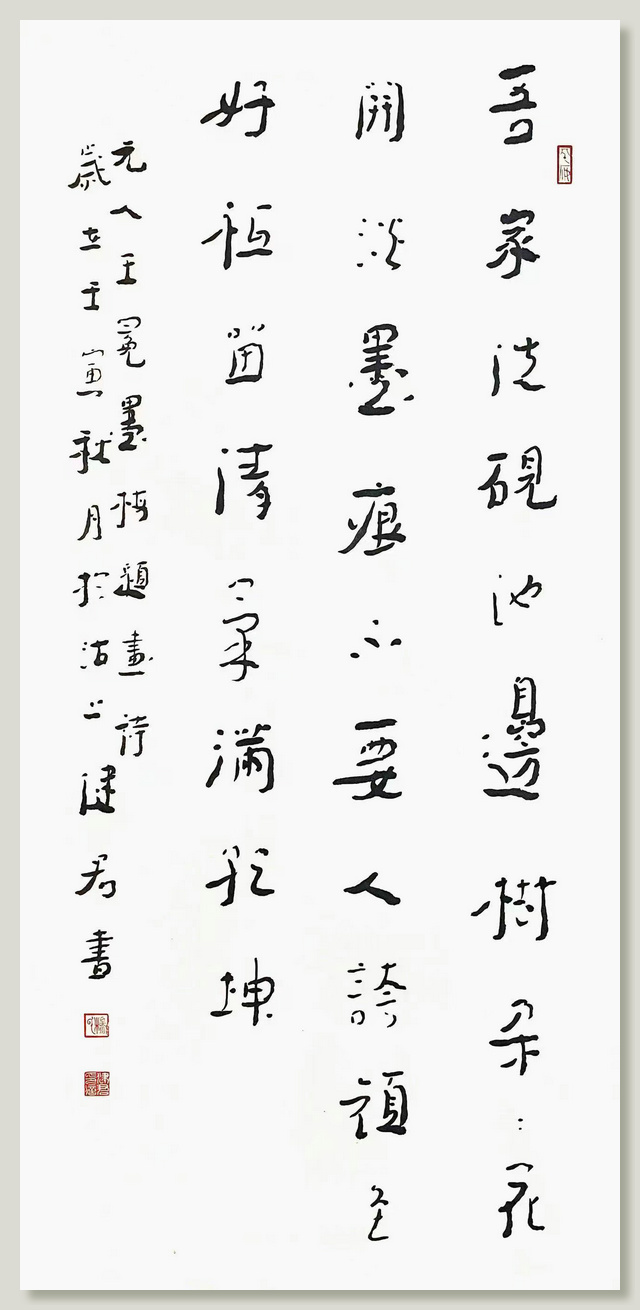 吾家洗硯池邊樹朵〻花
開淡墨痕不要人誇顔色
好祗留清氣滿乾坤
元人王冕墨梅題畫詩
歲在壬寅秋月於沽上健君書